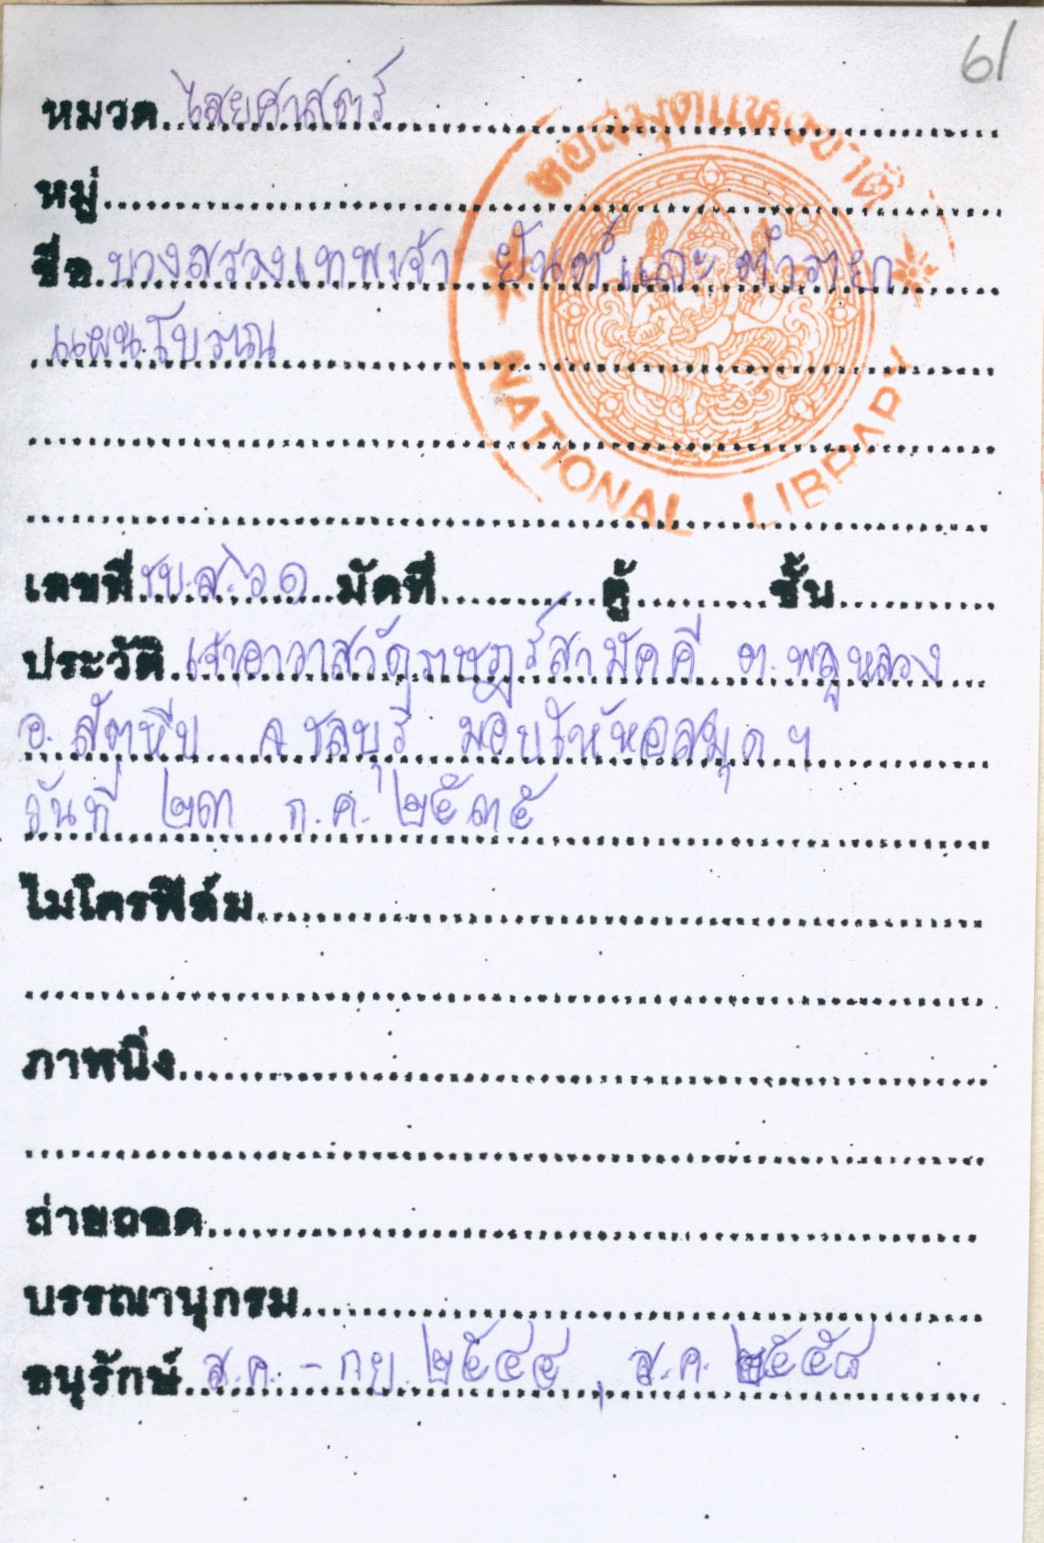 61
หมวด ไสยศาสตร์
หอสมุดแห่งชาติ
หมู่
ชื่อ บวงสรวงเทพเจ้า ยันต์และตำรายา
แผนโบราณ
NATIONAL LIBRARY
เลขที่ ชบ.ส. ๖๑ มัดที่ ตู้ ชั้น
ประวัติ เจ้าอาวาสวัดราษฎร์สามัคคี ต.พลูหลวง
อ. สัตหีบ จ ชลบุรี มอบให้หอสมุด ฯ
วันที่ ๒๓ ก.ค. ๒๕๓๕
ไมโครฟิล์ม
ภาพนิ่ง
ถ่ายถอด
บรรณานุกรม
อนุรักษ์ ส.ค. - กย. ๒๕๔๔, ส.ค. ๒๕๕๘